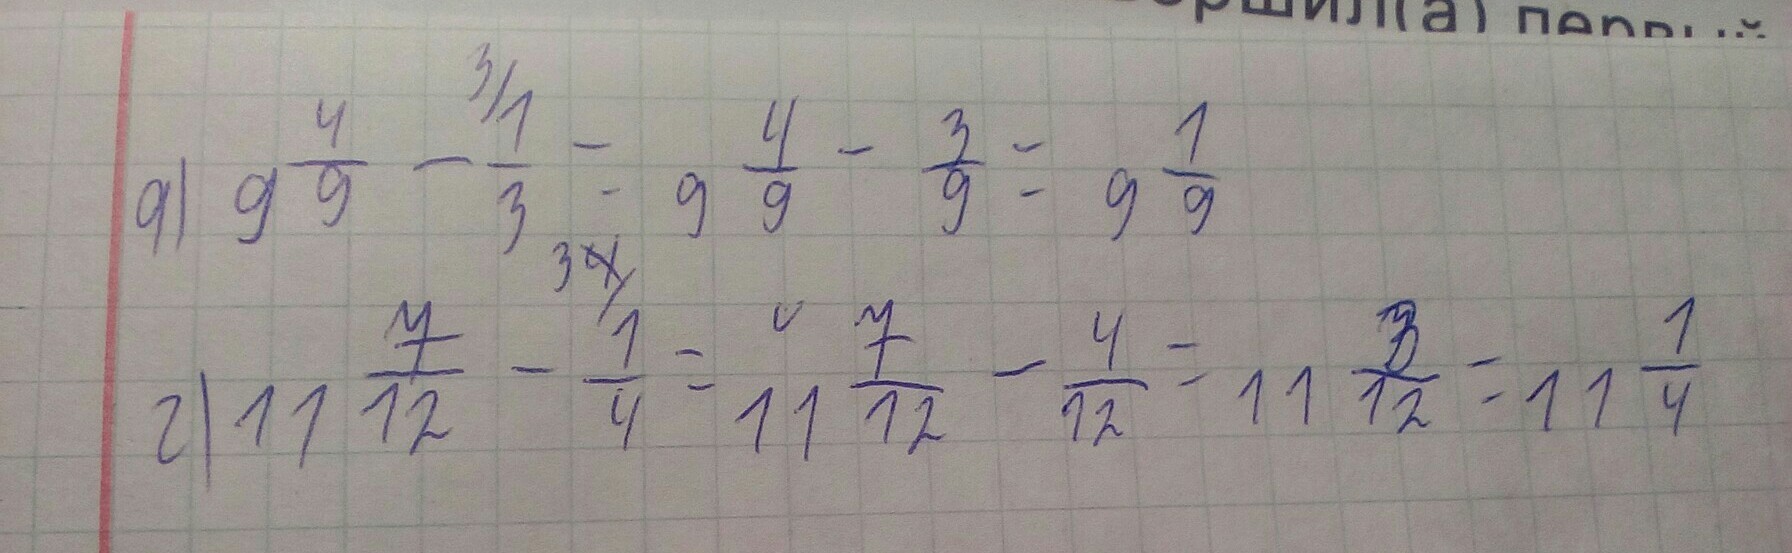 ершил(а) первый
а) 9 4/9 - 3/1/3 = 9 4/9 - 3/9 = 9 1/9
г) 11 7/12 - 3/1/4 = 11 7/12 - 4/12 = 11 3/12 = 11 1/4